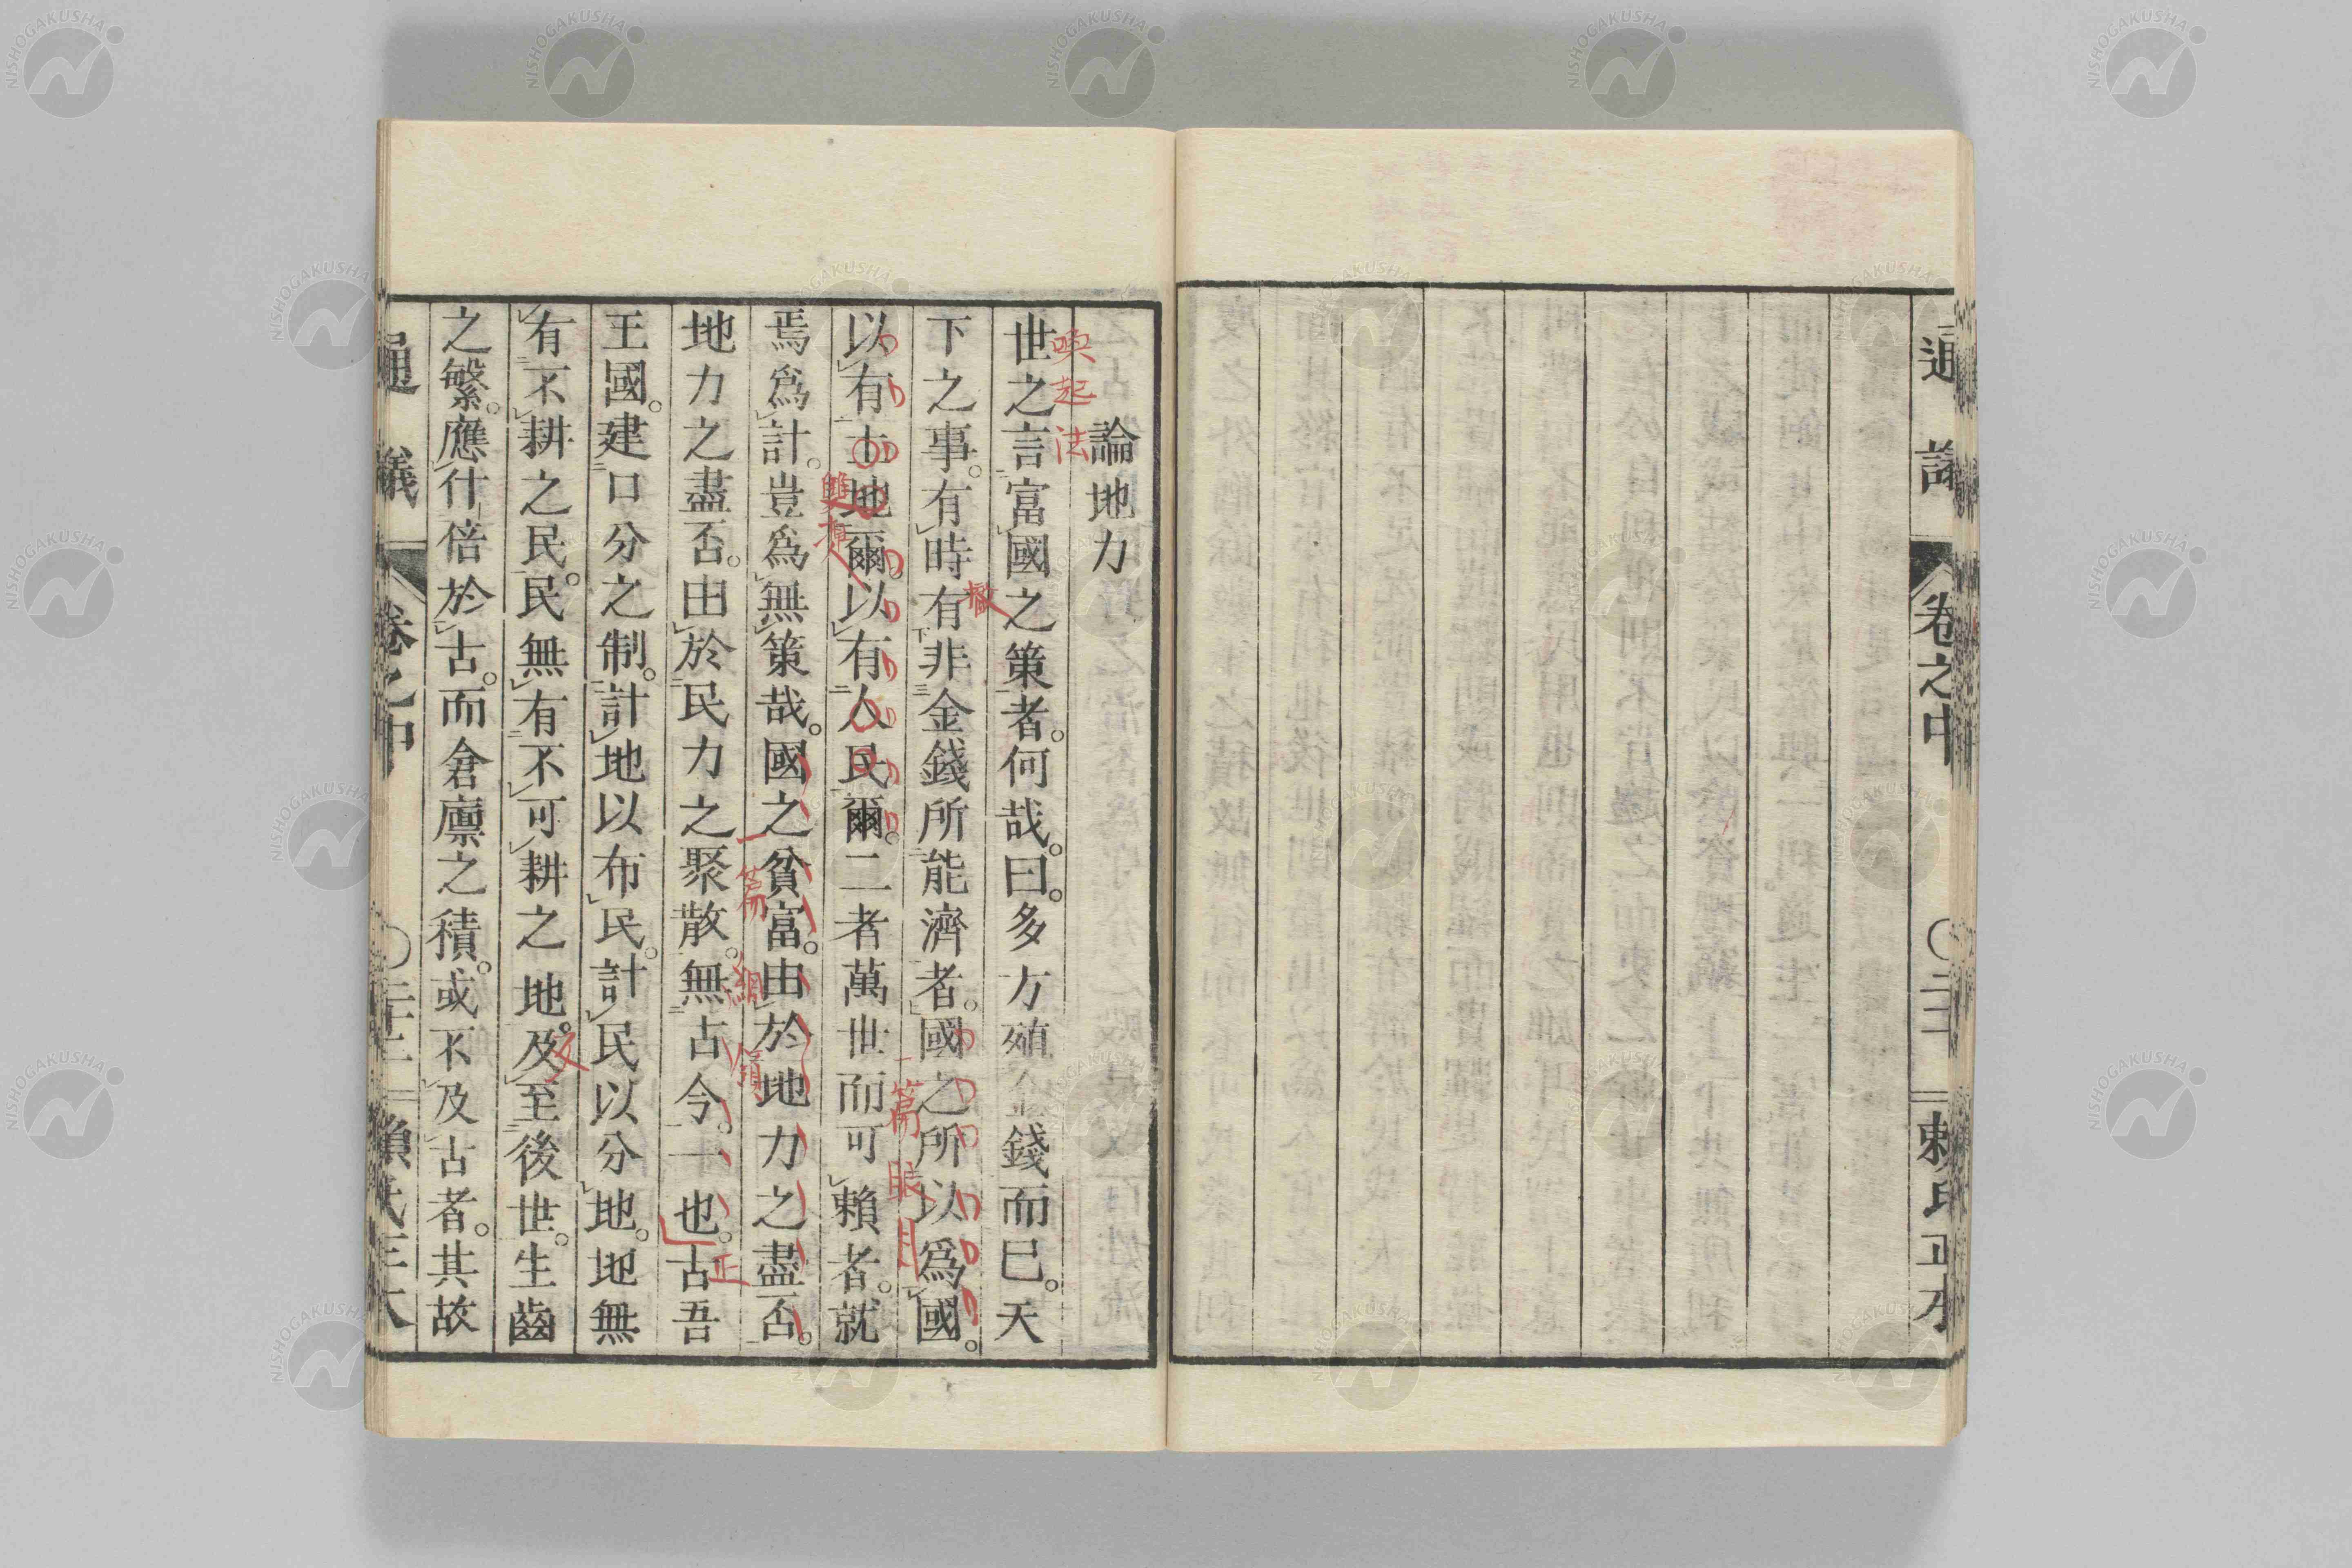 通議
卷之中
〇二十一
賴氏正本
論地力
世之言富國之策者。何哉。曰。多方殖金錢而已。天
下之事。有時有非金錢所能濟者。國之所以爲國。
以有土地爾。以有人民爾。二者萬世而可賴者。就
焉爲計。豈爲無策哉。國之貧富。由於地力之盡否。
地力之盡否。由於民力之聚散。無古今一也。古吾
王國。建口分之制。計地以布民。計民以分地。地無
有不耕之民。民無有不可耕之地。及至後世。生齒
之繁。應什倍於古。而倉廩之積。或不及古者。其故
喚起法
撇
一篇眼目
雙有
一篇綱領
正
反
通議
卷之中
〇二十二
賴氏正本
NISHOGAKUSHA